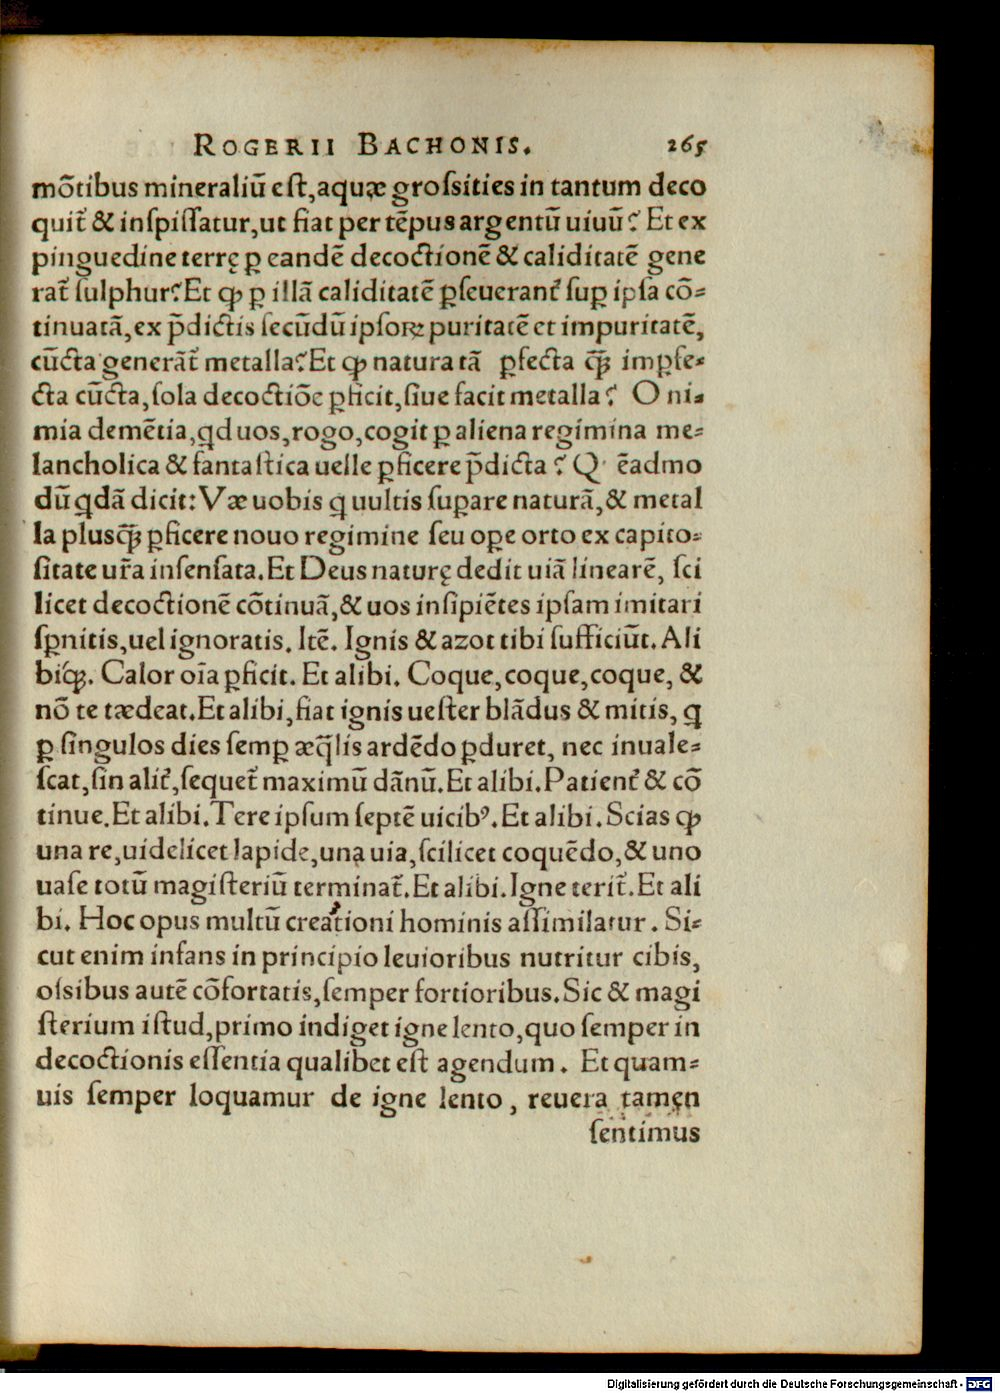 ROGERII BACHONIS. 265
mõtibus mineraliũ est, aquæ grossities in tantum deco
quit᷑ & inspissatur, ut fiat per tẽpus argentũ uiuũ? Et ex
pinguedine terrę ꝑ eandẽ decoctionẽ & caliditatẽ gene
rat᷑ sulphur? Et ꝙ ꝑ illã caliditatẽ ꝑseuerant᷑ suꝑ ipsa cõ-
tinuatã, ex p̃dictis secũdũ ipsoꝝ puritatẽ et impuritatẽ,
cũcta generãt᷑ metalla? Et ꝙ natura tã ꝑfecta q̃ꝫ impfe-
cta cũcta, sola decoctiõe ꝑficit, siue facit metalla? O ni-
mia demẽtia, qd uos, rogo, cogit ꝑ aliena regimina me-
lancholica & fantastica uelle ꝑficere p̃dicta? Q' ẽadmo
dũ qdã dicit: Væ uobis q uultis suꝑare naturã, & metal
la plusq̃ꝫ ꝑficere nouo regimine seu oꝑe orto ex capito-
sitate ur̃a insensata. Et Deus naturę dedit uiã linearẽ, sci
licet decoctionẽ cõtinuã, & uos insipiẽtes ipsam imitari
sꝑnitis, uel ignoratis. Itẽ. Ignis & azot tibi sufficiũt. Ali
biq́ꝫ. Calor oĩa ꝑficit. Et alibi. Coque, coque, coque, &
nõ te tædeat. Et alibi, fiat ignis uester blãdus & mitis, q
ꝑ singulos dies semꝑ æq̃lis ardẽdo ꝑduret, nec inuale-
scat, sin alit᷑, sequet᷑ maximũ dãnũ. Et alibi. Patient᷑ & cõ
tinue. Et alibi. Tere ipsum septẽ uicibꝰ. Et alibi. Scias ꝙ
una re, uidelicet lapide, una uia, scilicet coquẽdo, & uno
uase totũ magisteriũ terminat᷑. Et alibi. Igne terit᷑. Et ali
bi. Hoc opus multũ creationi hominis assimilatur. Si-
cut enim infans in principio leuioribus nutritur cibis,
ossibus autẽ cõfortatis, semper fortioribus. Sic & magi
sterium istud, primo indiget igne lento, quo semper in
decoctionis essentia qualibet est agendum. Et quam-
uis semper loquamur de igne lento, reuera tamen
sentimus
Digitalisierung gefördert durch die Deutsche Forschungsgemeinschaft - DFG